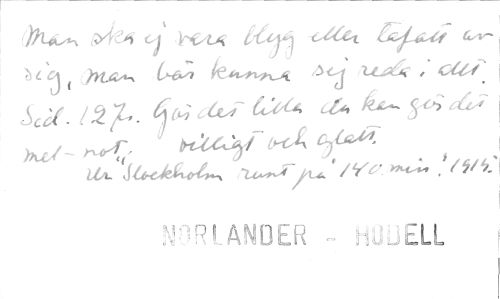 Man ska ej vara blyg eller tafatt av
sig, man bör kunna sig reda i allt.
Sid. 127s. Gör det lilla du kan gör det
met-not; villigt och glatt.
Ur "Stockholm runt på 140 min". 1915.
NORLANDER - HODELL